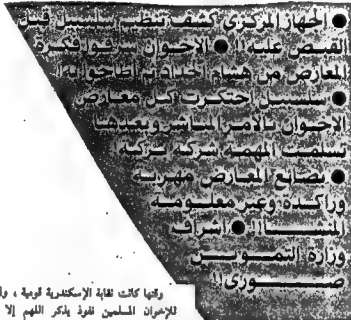 ● الجهاز المركزى كشف تنظيم سلسبيل قبل
القبض عليه !! ● الاخوان سرقوا فكرة
المعارض من هشام الحداد ثم اطاحوا به !
● سلسبيل احتكرت كل معارض
الاخوان بالأمر المباشر وبعدها
تسلمت المهمة شركة بركة
● بضائع المعارض مهربة
وراكدة وغير معلومة
المنشأ !! ● اشراف
وزارة التموين
صورى !!
وقتها كانت نقابة الإسكندرية قومية ، ولم
للإخوان المسلمين نفوذ يذكر اللهم إلا